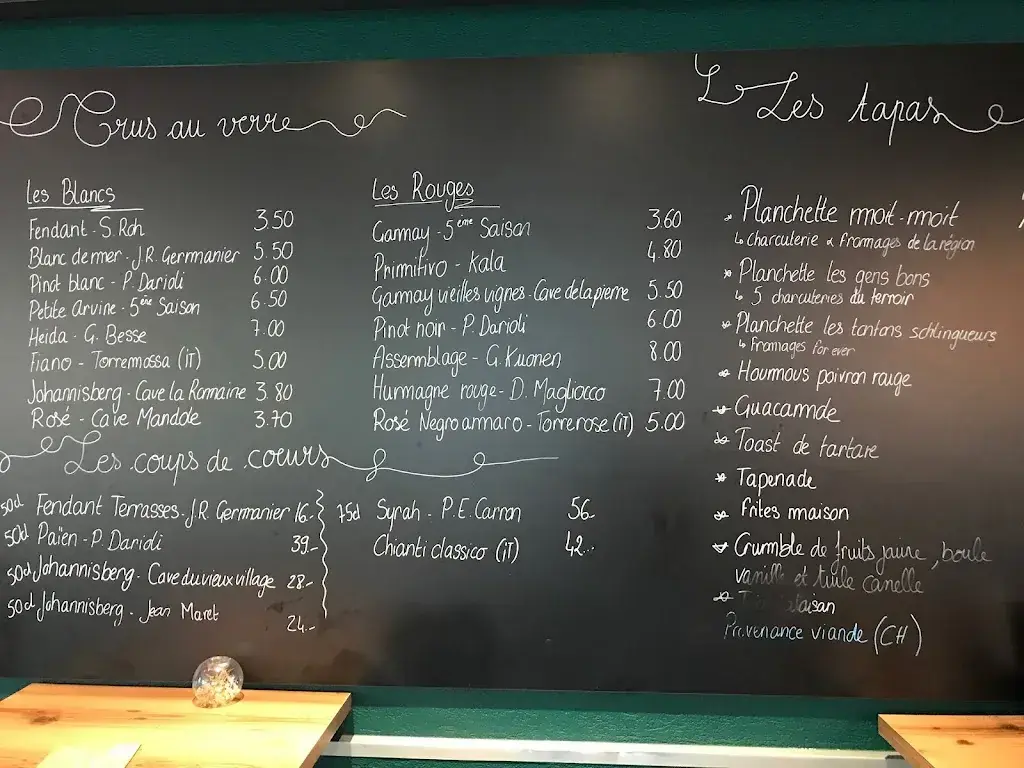 Crus au verre
Les Blancs
Fendant - S. Roh 3.50
Blanc de mer - J.R. Germanier 5.50
Pinot blanc - P. Darioli 6.00
Petite arvine - 5ème Saison 6.50
Heida - G. Besse 7.00
Fiano - Torremossa (iT) 5.00
Johannisberg - Cave la Romaine 3.80
Rosé - Cave Mandole 3.70
Les Rouges
Gamay - 5ème Saison 3.60
Primitivo - Kala 4.80
Gamay vieilles vignes - Cave de la pierre 5.50
Pinot noir - P. Darioli 6.00
Assemblage - G. Kuonen 8.00
Humagne rouge - D. Magliocco 7.00
Rosé Negroamaro - Torrerose (iT) 5.00
Les coups de coeurs
50cl Fendant Terrasses - J.R Germanier 16.-
50cl Païen - P. Darioli 39.-
50cl Johannisberg - Cave du vieux village 28.-
50cl Johannisberg - Jean Maret 24.-
75cl Syrah - P.E. Carron 56.-
Chianti classico (iT) 42.-
Les tapas
Planchette moit-moit
Charcuterie & fromages de la région
Planchette les gens bons
5 charcuteries du terroir
Planchette les tontons schlingueurs
Fromages for ever
Houmous poivron rouge
Guacamole
Toast de tartare
Tapenade
Frites maison
Crumble de fruits jaune, boule
vanille et tuile canelle
Provenance viande (CH)